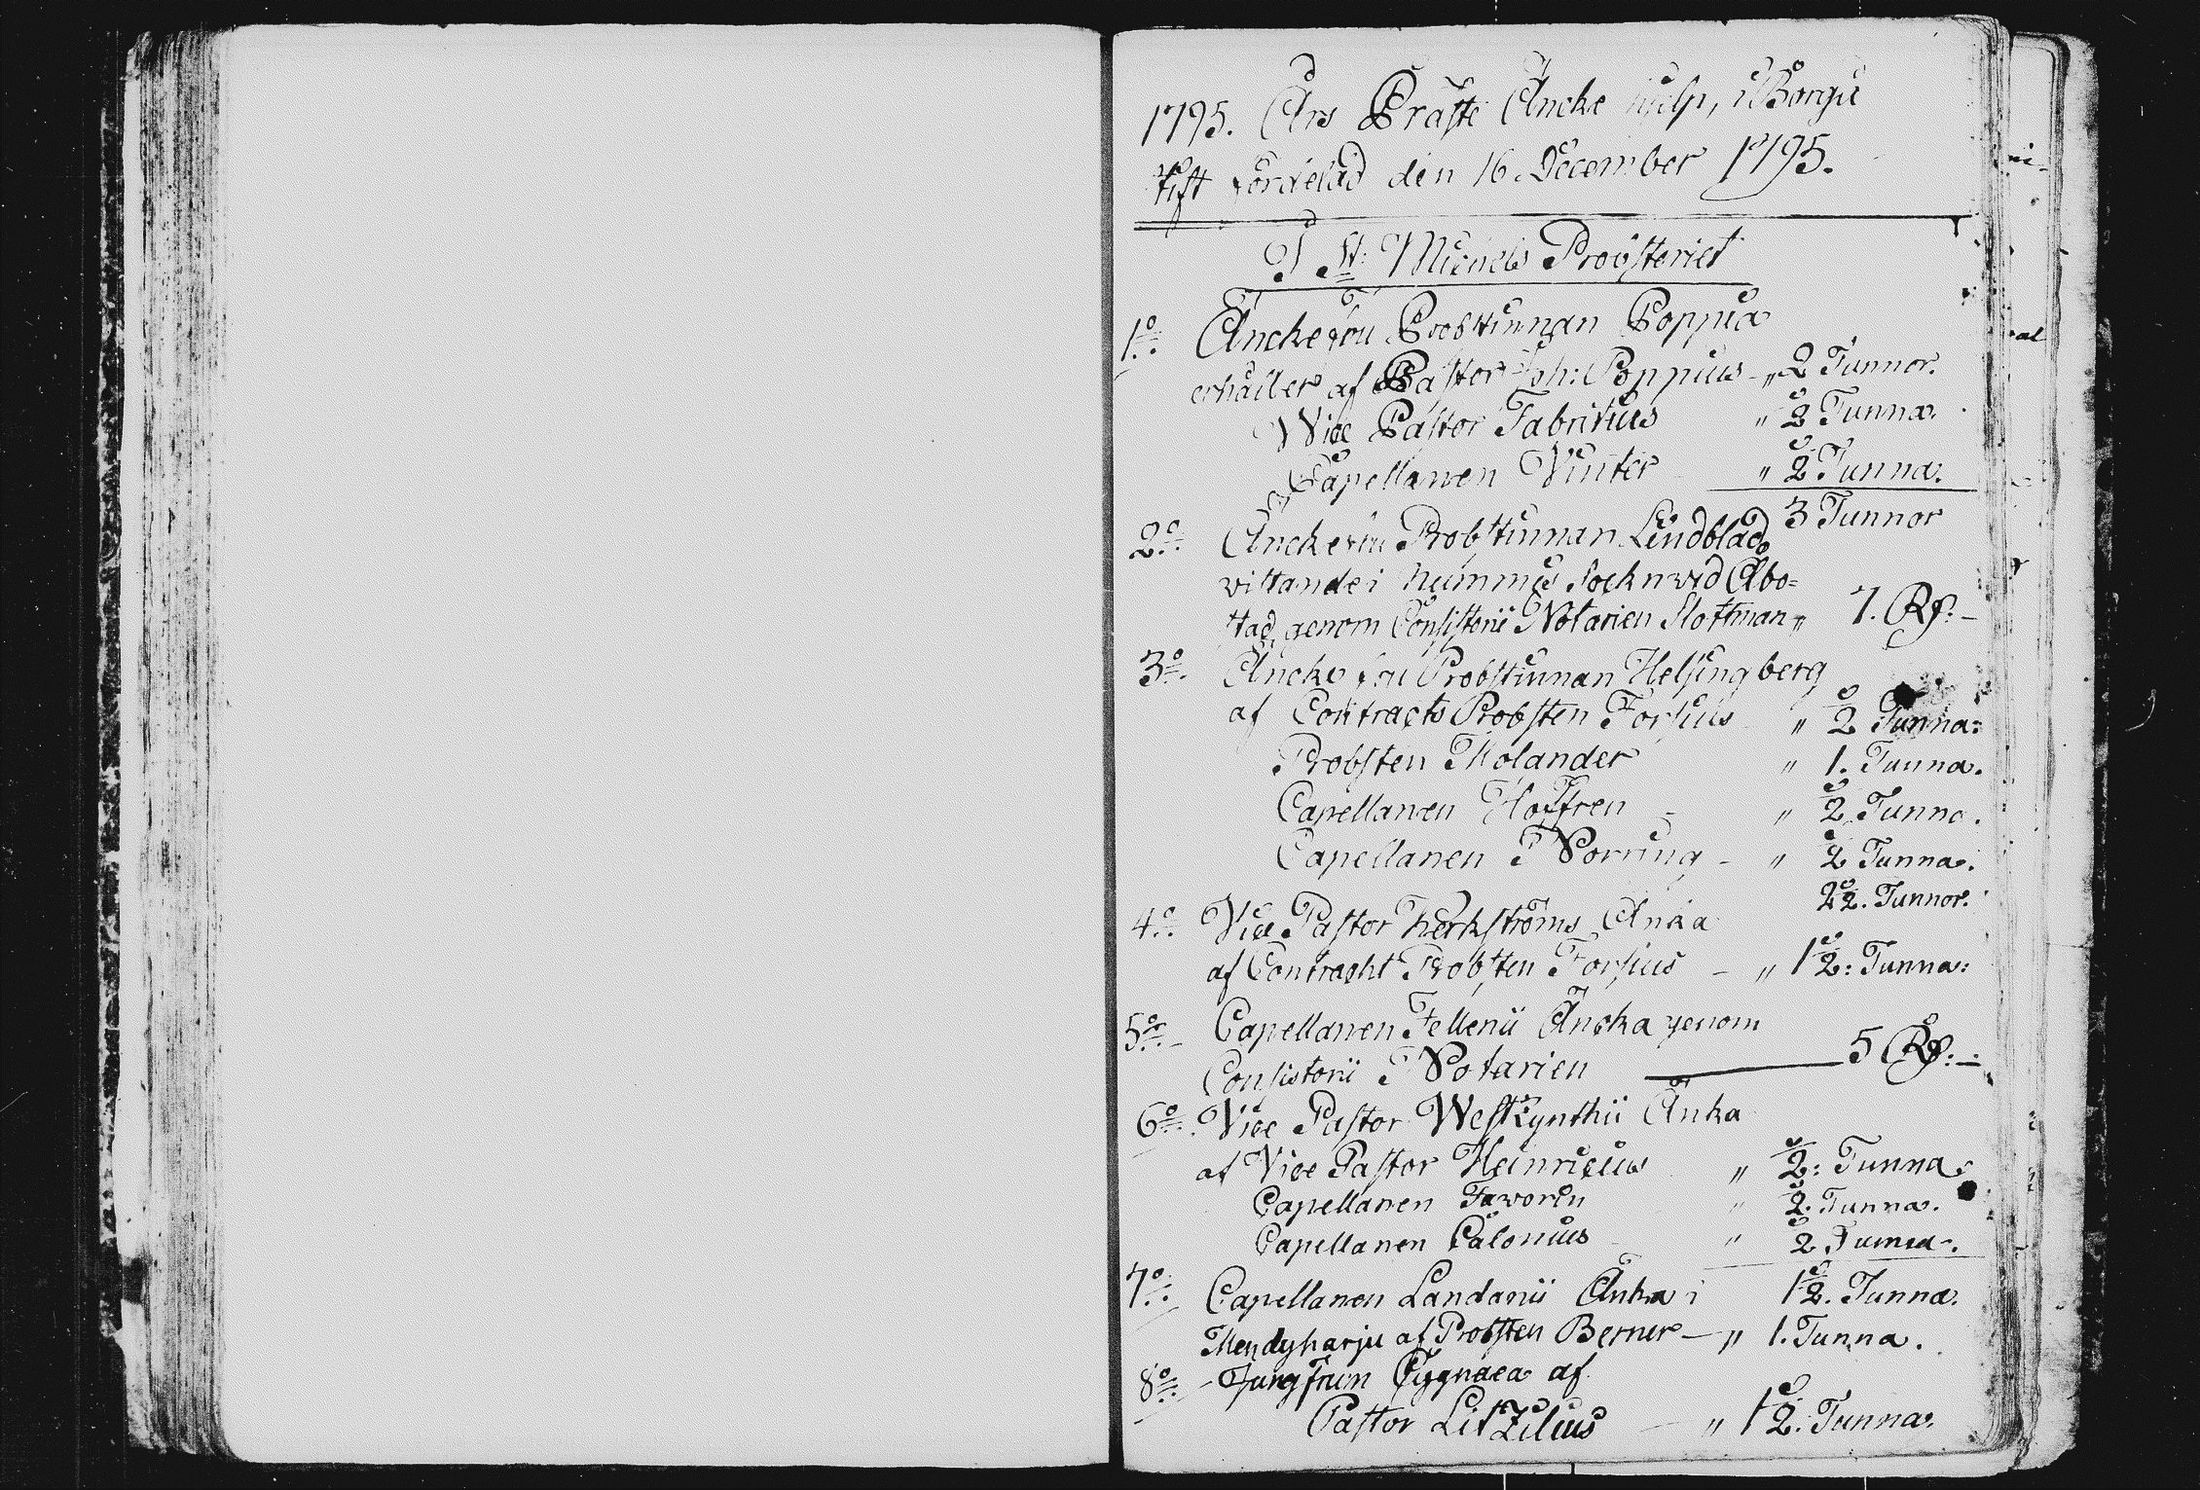 1795. Års Präste Äncke hjelp, i Borgå
Stift fördelad den 16 December 1795.
I St: Michels Prousteriet
1:o Änckefru Probstinnan Poppia
erhåller af Pastor Joh: Poppius - „ 2 Tunnor.
Vice Pastor Fabritius „ ½ Tunna.
Capellanen Vinter „ ½ Tunna.
3 Tunnor
2:o Änckefru Probstinnan Lindblad
vistande i Nummis Sockn vid Åbo=
stad, genom Consistorii Notarien Slottman „ 7. R:
3:o Äncke fru Probstinnan Helsingberg
af Contracts Probsten Forsius „ ½ Tunna:
Probsten Molander „ 1. Tunna.
Capellanen Hoffren - „ ½ Tunna.
Capellanen Norring - „ ½ Tunna.
2½. Tunnor.
4:o Vice Pastor Herkströms Änka
af Contracht Probsten Forsius - „ 1½: Tunna:
5:o - Capellanen Fellenii Äncka genom
Consistorii Notarien 5 R: -
6:o. Vice Pastor Westzynthii Änka
af Vice Pastor Heinricius „ ½: Tunna.
Capellanen Faworin „ ½. Tunna.
Capellanen Calonius „ ½ Tunna.
1½. Tunna.
7:o Capellanen Landanii Änka i
Mendyharju af Probsten Berner - „ 1. Tunna.
8:o - Jungfrun Cygnaea af
Pastor Litzilius - „ 1½. Tunna.